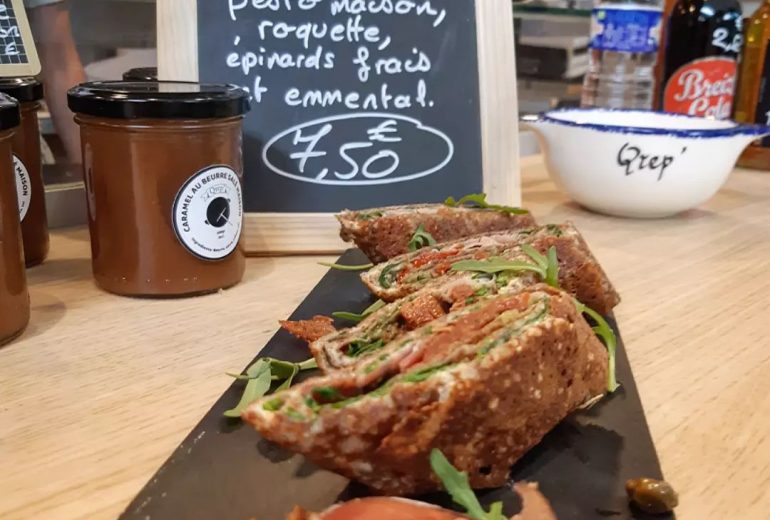 pesto maison,
roquette,
épinards frais
et emmental.
7,50 €
CARAMEL AU BEURRE SALÉ MAISON
Qrep'
Breizh
Cola